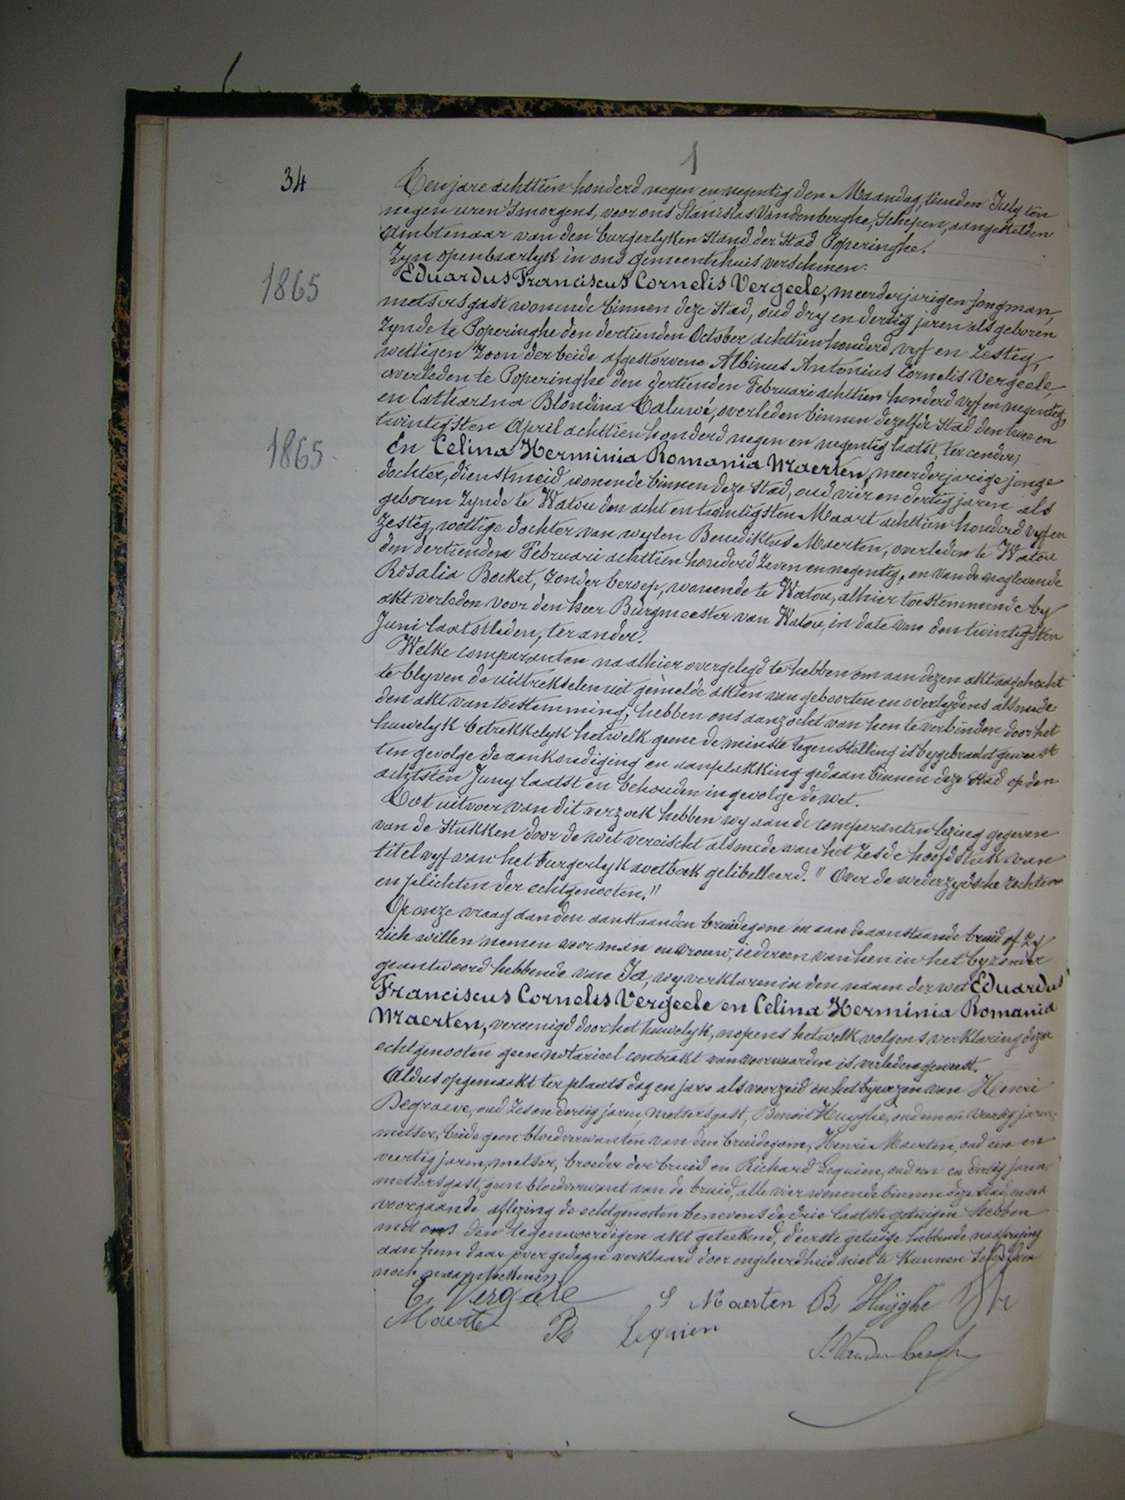 1
34
Ten jare achttien honderd negen en negentig den Maandag, tienden July ten
negen uren 's morgens, voor ons Stanislas Vandenberghe, Schepen, aangestelden
Ambtenaar van den burgerlyken Stand der Stad Poperinghe.
Zyn openbaarlyk in ons gemeentehuis verschenen:
1865
Eduardus Franciscus Cornelis Vergeele, meerderjarigen jongman,
metsersgast wonende binnen deze Stad, oud dry en dertig jaren als geboren
zynde te Poperinghe den dertienden October achttien honderd vyf en zestig,
wettigen zoon der beide afgestorvene Albinus Antonius Cornelis Vergeele,
overleden te Poperinghe den dertienden Februari achttien honderd vyf en negentig,
en Catharina Blondina Caluwé, overleden binnen dezelfde Stad den twee en
twintigsten April achttien honderd negen en negentig laatst, ter eender;
1865
En Celina Herminia Romania Maerten, meerderjarige jonge
dochter, dienstmeid wonende binnen deze Stad, oud vier en dertig jaren als
geboren zynde te Watou den acht en twintigsten Maart achttien honderd vyf en
zestig, wettige dochter van wylen Benediktus Maerten, overleden te Watou
den dertienden Februari achttien honderd zeven en negentig, en van de noglevende
Rosalia Becket, zonder beroep, wonende te Watou, alhier toestemmende by
akt verleden voor den heer Burgmeester van Watou, in date van den twintigsten
Juni laatstleden, ter ander.
Welke comparanten na alhier overgelegd te hebben om aan dezen akt aangehecht
te blyven de uittrekselen uit gemelde akten van geboorten en overlydens alsmede
den akt van toestemming, hebben ons aanzocht van hen te verbinden door het
huwelyk betrekkelyk hetwelk geene de minste tegenstelling is bygebracht geweest
ten gevolge de aankondiging en aanplakking gedaan binnen deze Stad op den
achtsten Juny laatst en behouden ingevolge de wet.
Tot uitvoer van dit verzoek hebben wy aan de comparanten lezing gegeven
van de Stukken door de wet vereischt alsmede van het Zesde hoofdstuk van
titel vyf van het burgerlyk wetboek gelibelleerd. "Over de wederzydsche rechten
en plichten der echtgenooten."
Op onze vraag aan den aanstaanden bruidegom en aan de aanstaande bruid of zy
zich willen nemen voor man en vrouw, iedereen van hen in het byzonder
geantwoord hebbende van Ja, wy verklaren in den naam der wet Eduardus
Franciscus Cornelis Vergeele en Celina Herminia Romania
Maerten, vereenigd door het huwelyk, nopens hetwelk volgens verklaring dezer
echtgenooten geen notarieel contrakt van voorwaarden is verleden geweest.
Aldus opgemaakt ter plaats dag en jare als voorzeid en het bywezen van Henri
Degraeve, oud zes en dertig jaren, metsersgast, Benoit Huyghe, oud een en veertig jaren,
metser, beide geen bloedverwanten van den bruidegom, Henri Maerten, oud een en
veertig jaren, metser, broeder der bruid en Richard Lequien, oud een en dertig jaren,
metsersgast, geen bloedverwant van de bruid, alle vier wonende binnen deze stad, en na
voorgaande aflezing de echtgenooten benevens de drie laatste getuigen hebben
met ons den tegenwoordigen akt geteekend, d'eerste getuige hebbende na afvraging
aan hem daar over gedaan verklaard door ongeleerdheid niet te kunnen schryven
noch naamteekenen.
E. Vergeele
S Maerten
B. Huÿghe
Maerte
R
Lequien
S. Vandenberghe